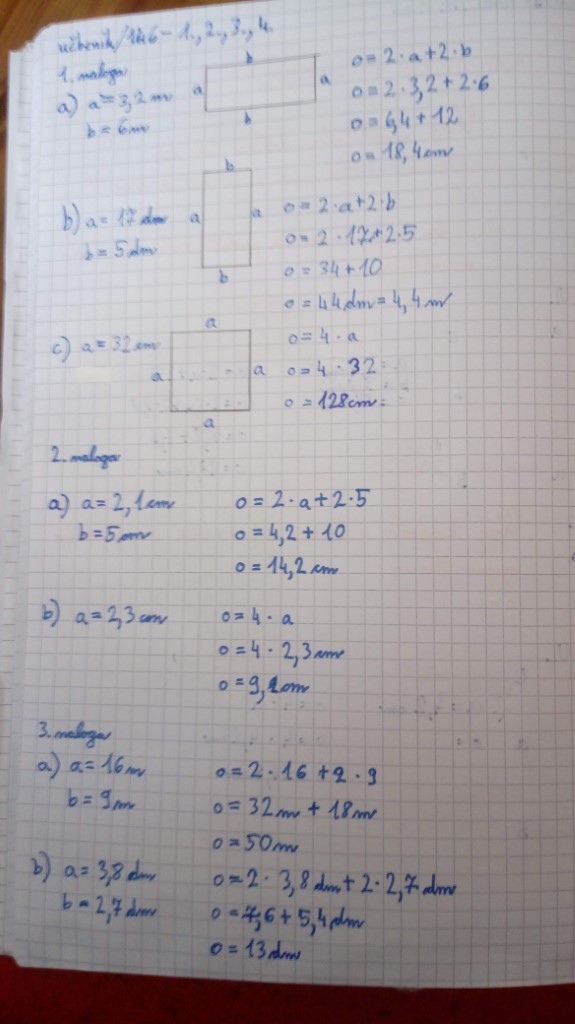 učbenik/146 - 1., 2., 3., 4.
1. naloga
a) a = 3,2 m
b = 6m
b
a
a
b
o = 2 · a + 2 · b
o = 2 · 3,2 + 2 · 6
o = 6,4 + 12
o = 18,4 cm
b) a = 17 dm
b = 5 dm
b
a
a
b
o = 2 · a + 2 · b
o = 2 · 17 + 2 · 5
o = 34 + 10
o = 44 dm = 4,4 m
c) a = 32 cm
a
a
a
a
o = 4 · a
o = 4 · 32
o = 128 cm
2. naloga
a) a = 2,1 cm
b = 5 cm
o = 2 · a + 2 · 5
o = 4,2 + 10
o = 14,2 cm
b) a = 2,3 cm
o = 4 · a
o = 4 · 2,3 cm
o = 9,2 cm
3. naloga
a) a = 16 m
b = 9 m
o = 2 · 16 + 2 · 9
o = 32 m + 18 m
o = 50 m
b) a = 3,8 dm
b = 2,7 dm
o = 2 · 3,8 dm + 2 · 2,7 dm
o = 7,6 + 5,4 dm
o = 13 dm